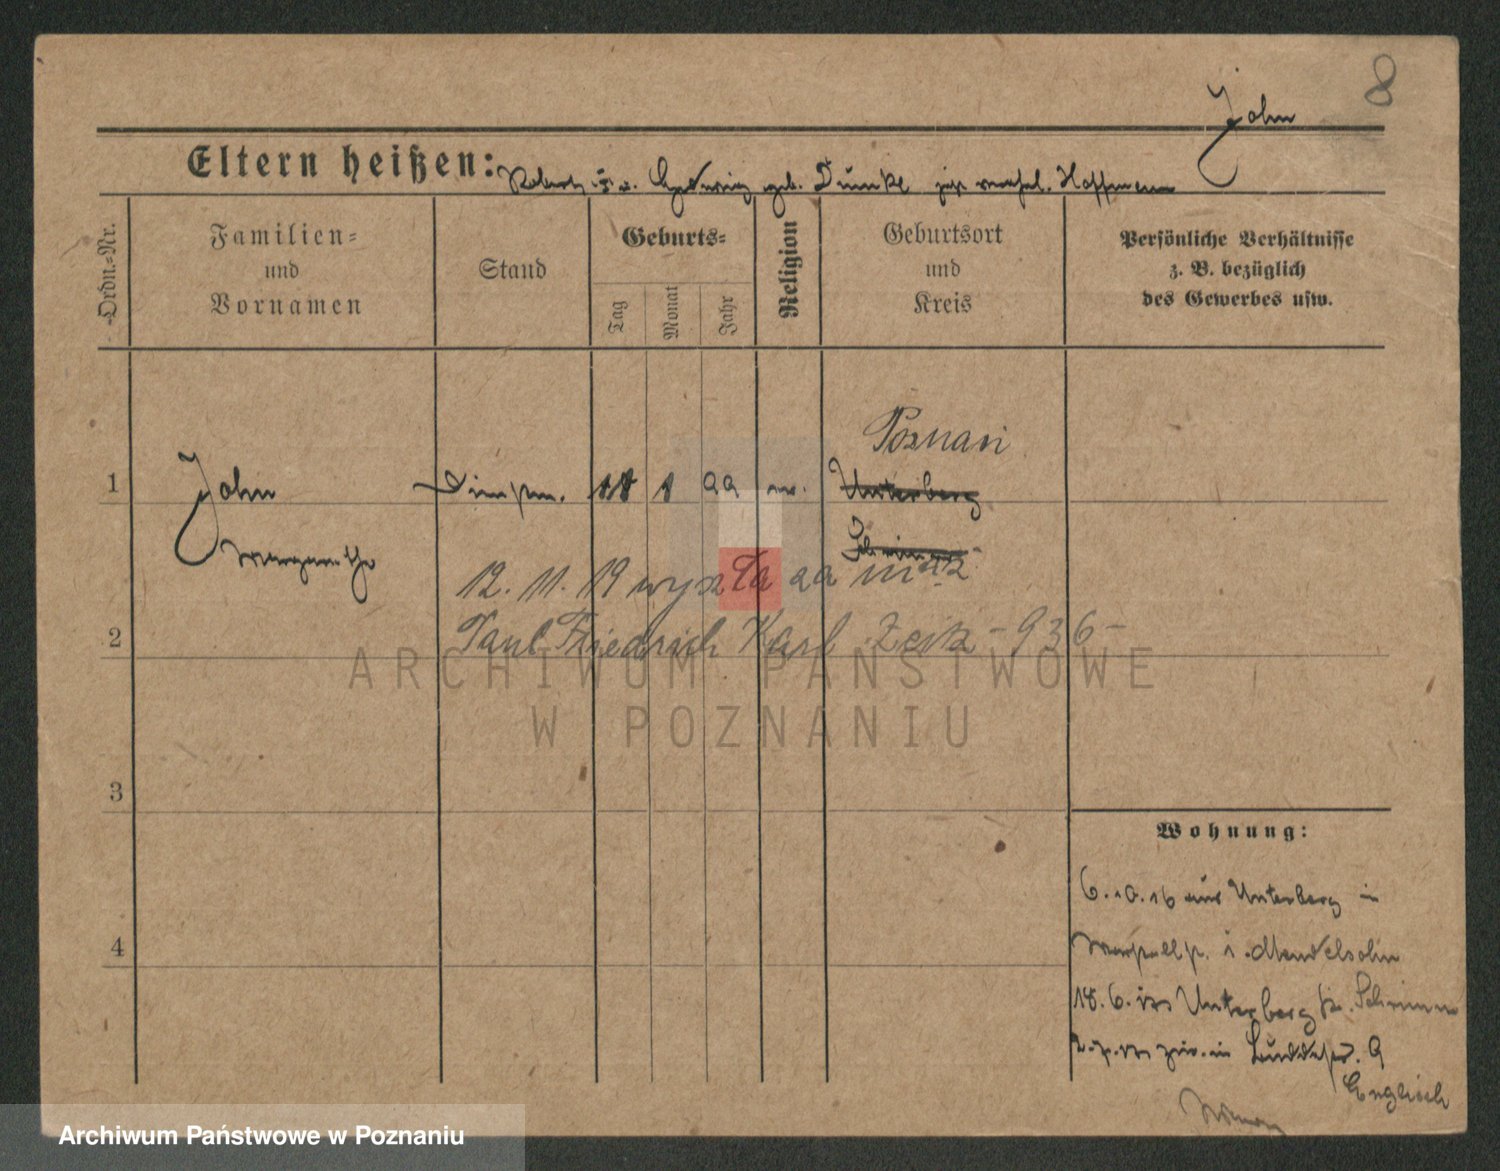 8
John
Eltern heißen: Robert u. Hedwig geb. Dünke jetzt verehel. Hoffmann
Ordn.-Nr.
Familien-
und
Vornamen
Stand
Geburts-
Tag
Monat
Jahr
Religion
Geburtsort
und
Kreis
Persönliche Verhältnisse
z. B. bezüglich
des Gewerbes usw.
Poznań
1 John Dienstm. 18 1 99 ev. Unterberg
Schrimm
Margarethe
12. 11. 19 wyszła za mąż
2 Paul Friedrich Karl Zeitz - 936 -
ARCHIWUM PAŃSTWOWE
W POZNANIU
3
Wohnung:
6.10.16 aus Unterberg in
4 i. Mendelsohn
18. 6. Unterberg Kr. Schrimm
in 9
Englisch
Archiwum Państwowe w Poznaniu